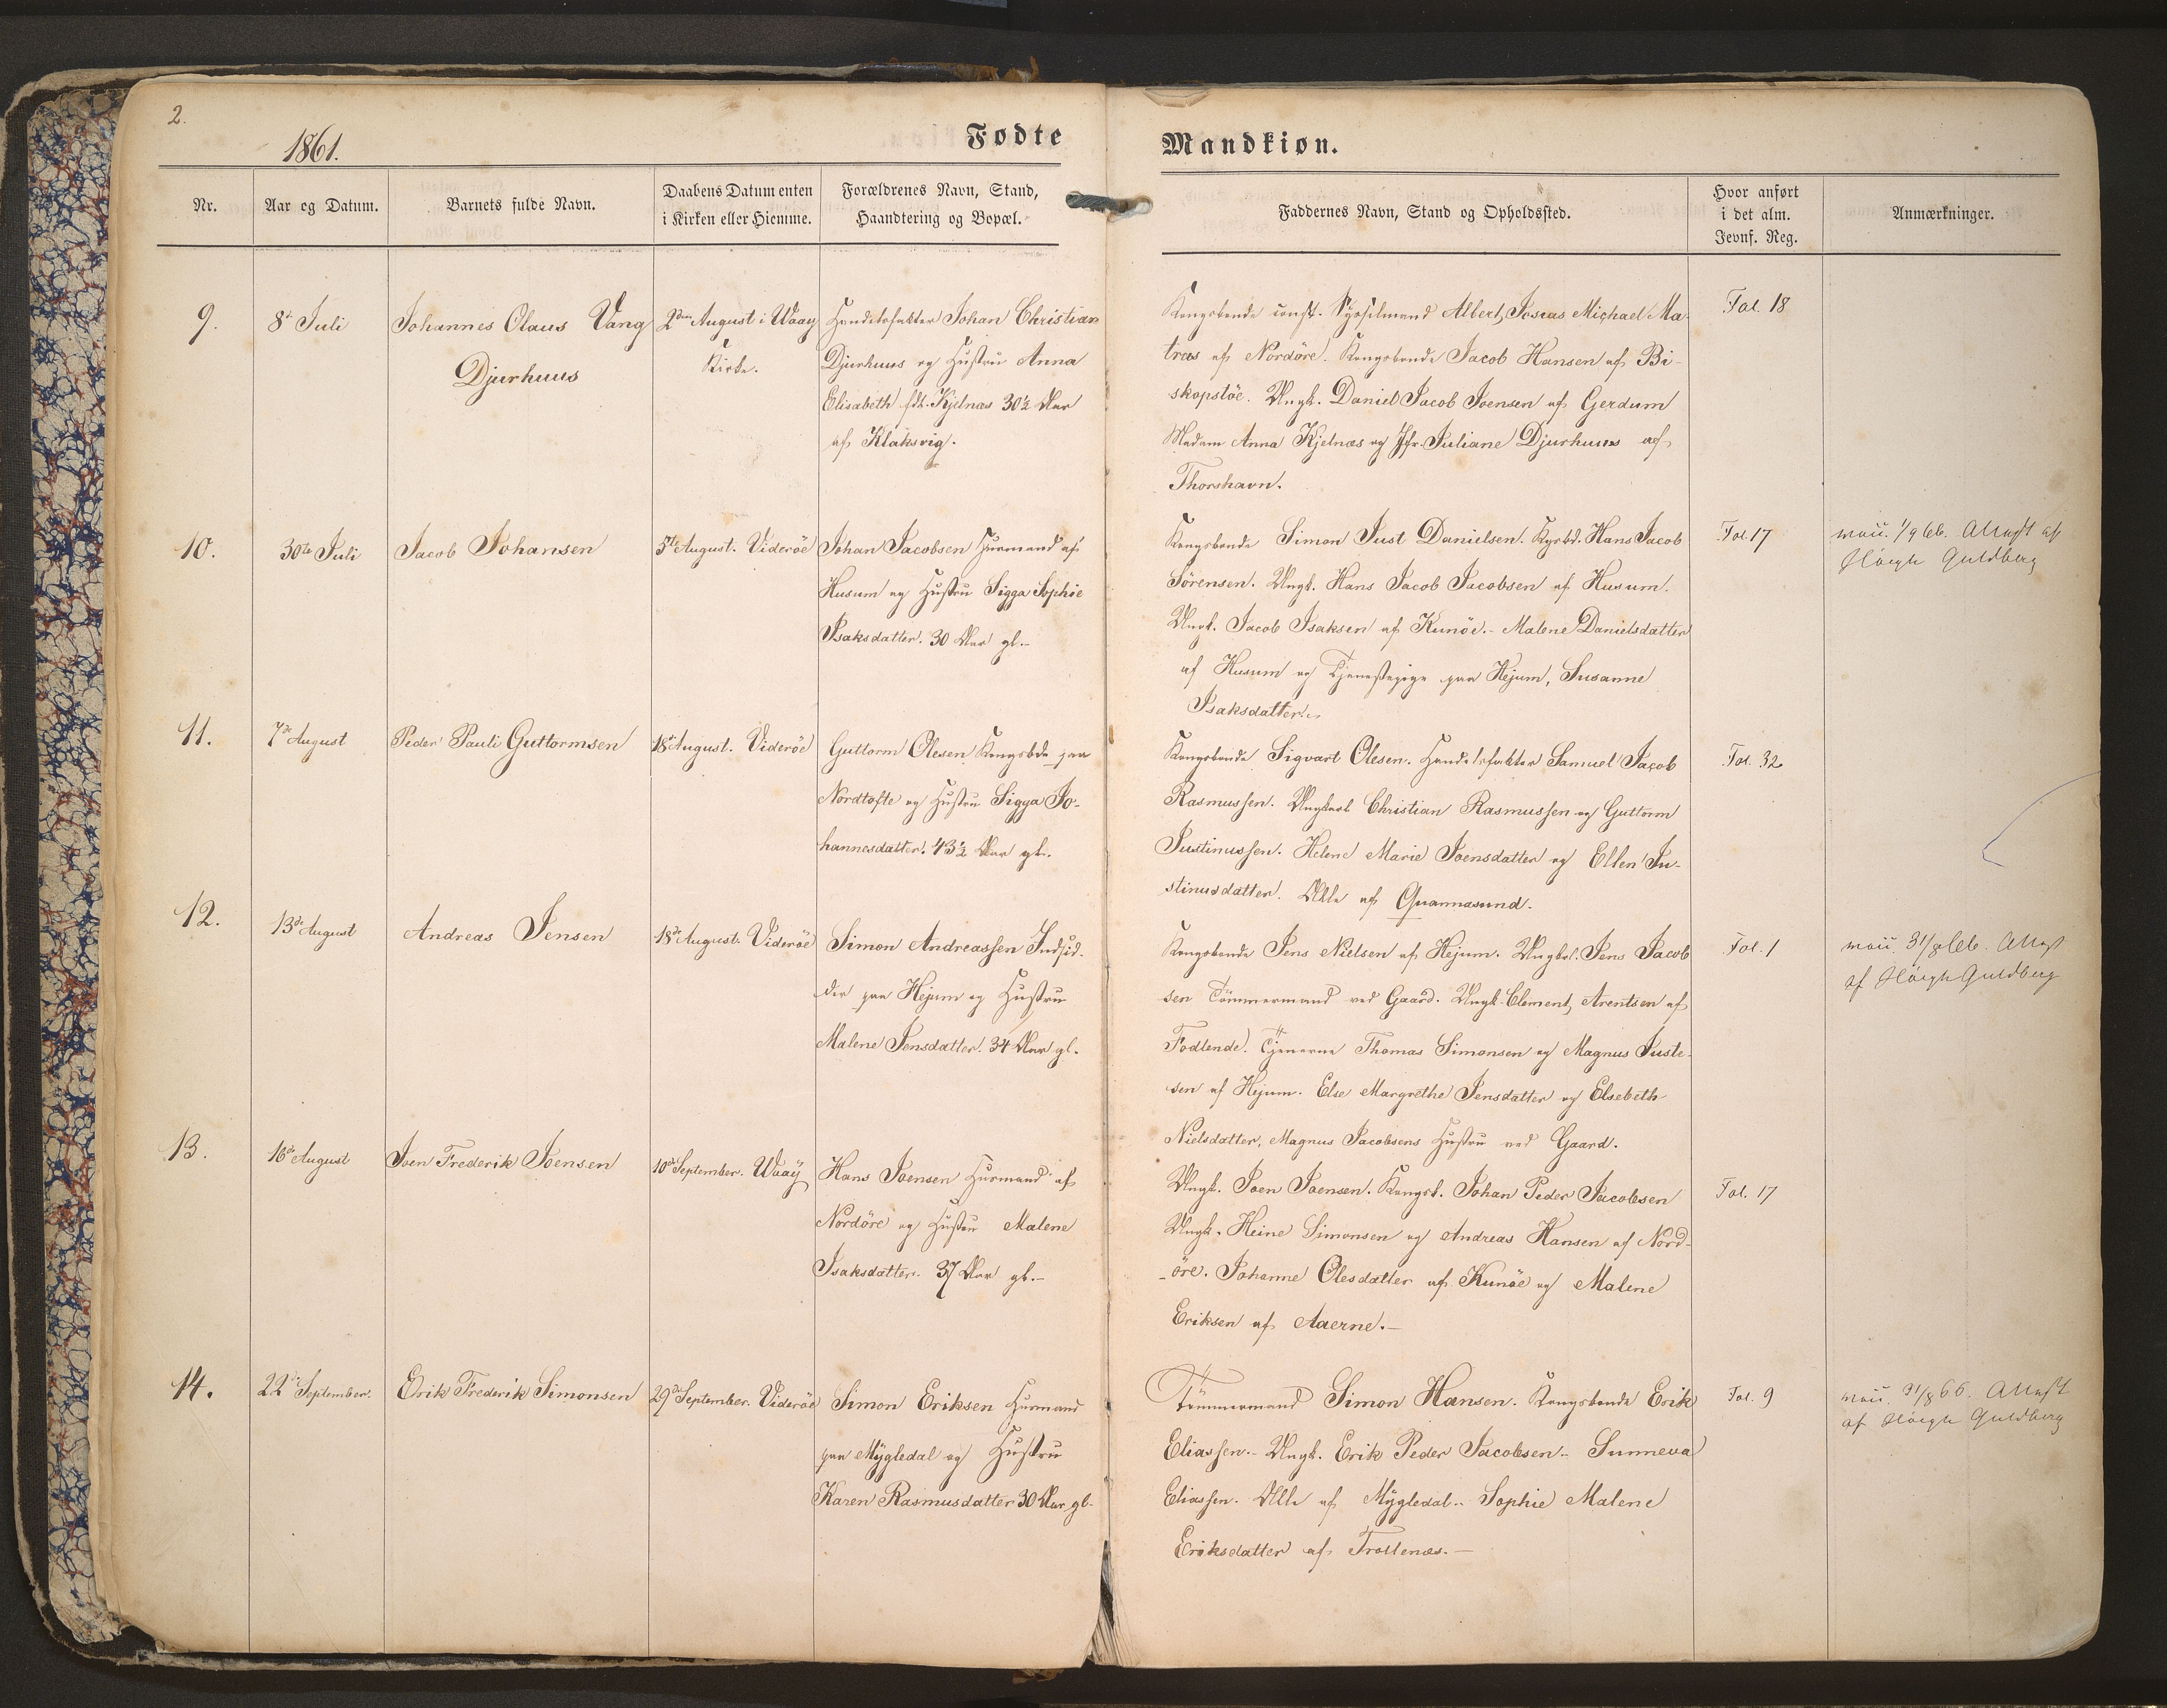 2.
1861.
Fødte
Mandkiøn.
Nr.
Aar og Datum.
Barnets fulde Navn.
Daabens Datum enten
i Kirken eller Hjemme.
Forældrenes Navn, Stand,
Haandtering og Bopæl.
Faddernes Navn, Stand og Opholdssted.
Hvor anført
i det alm.
Jevnf. Reg.
Anmærkninger.
9.
8de Juli
Johannes Olaus Vang
Djurhuus
2den August i Waay
Kirke.
Handelsfakter Johan Christian
Djurhuus og Hustru Anna
Elisabeth fdt. Kjelnæs 30½ Aar
af Klaksvig.
Kongsbonde const. Sysselmand Albert Josias Michael Ma-
tras af Nordöre. Kongsbonde Jacob Hansen af Bi-
skopstöe. Ungk. Daniel Jacob Joensen af Gerdum
Madam Anna Kjelnæs og Jfr. Juliane Djurhuus af
Thorshavn.
Fol. 18
10.
30te Juli
Jacob Johansen
5te August. Viderøe
Johan Jacobsen Huusmand af
Husum og Hustru Sigga Sophie
Isaksdatter. 30 Aar gl.-
Kongsbonde Simon Just Danielsen. Hans Jacob
Sörensen. Ungk. Hans Jacob Jacobsen af Husum.
Ungk. Jacob Isaksen af Kunöe.- Malene Danielsdatter
af Husum og Tjenestepige paa Hejum, Susanne
Isaksdatter.
Fol. 17
1/9 66. Attest af
Höegh Guldberg
11.
7de August
Peder Pauli Guttormsen
18de August. Viderøe
Guttorm Olesen Kongsbde paa
Nordtofte og Hustru Sigga Jo-
hannesdatter. 43½ Aar gl.
Kongsbonde Sigvart Olesen. Handelsfakter Samuel Jacob
Rasmussen. Ungkarl Christian Rasmussen og Guttorm
Justinussen. Helene Marie Joensdatter og Ellen Ju-
stinusdatter. Alle af Quannasund.
Fol. 32
12.
13de August
Andreas Jensen
18de August. Viderøe
Simon Andreassen Indsid-
der paa Hejum og Hustru
Malene Jensdatter. 34 Aar gl.
Kongsbonde Jens Nielsen af Hejum. Ungkl. Jens Jacob
sen Tömmermand ved Gaard. Ungk. Clement Arentsen af
Fodlende. Tjenerne Thomas Simonsen og Magnus Juste-
sen af Hejum. Else Margrethe Jensdatter og Elsebeth
Nielsdatter, Magnus Jacobsens Hustru ved Gaard.
Fol. 1
31/8 66. Attest
af Höegh Guldberg
13.
16de August
Joen Frederik Joensen
10de September. Waaÿ
Hans Joensen Huusmand af
Nordöre og Hustru Malene
Isaksdatter. 37 Aar gl.-
Ungk. Joen Joensen. Kongsb. Johan Peder Jacobsen
Ungk. Heine Simonsen og Andreas Hansen af Nord-
-öre. Johanne Olesdatter af Kunöe og Malene
Eriksen af Aaerne.-
Fol. 17
14.
22de September.
Erik Frederik Simonsen
29de September. Viderøe
Simon Eriksen Huusmand
paa Mÿgledal og Hustru
Karen Rasmusdatter 30 Aar gl.
Tömmermand Simon Hansen. Kongsbonde Erik
Eliassen.- Ungk. Erik Peder Jacobsen.- Sunneva
Eliassen. Alle af Mÿgledal.- Sophie Malene
Eriksdatter af Trollenæs.-
Fol. 9
31/8 66. Attest
af Höegh Guldberg